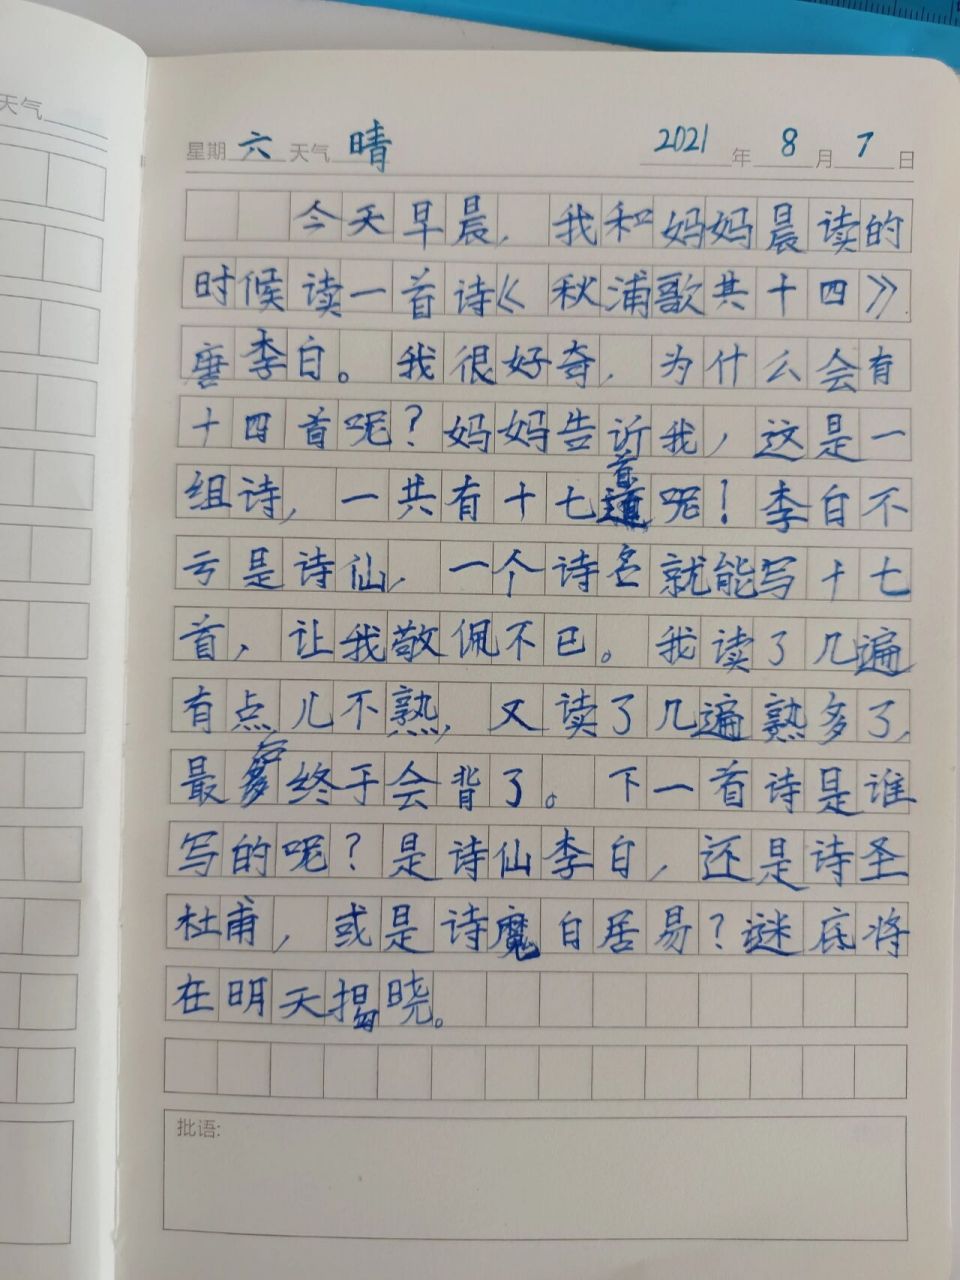 天气
星期 六 天气 晴 2021 年 8 月 7 日
今天早晨,我和妈妈晨读的
时候读一首诗《秋浦歌共十四》
唐李白。我很好奇,为什么会有
十四首呢?妈妈告诉我,这是一
组诗,一共有十七首呢!李白不
亏是诗仙,一个诗名就能写十七
首,让我敬佩不已。我读了几遍
有点儿不熟,又读了几遍熟多了,
最后终于会背了。下一首诗是谁
写的呢?是诗仙李白,还是诗圣
杜甫,或是诗魔白居易?谜底将
在明天揭晓。
批语: